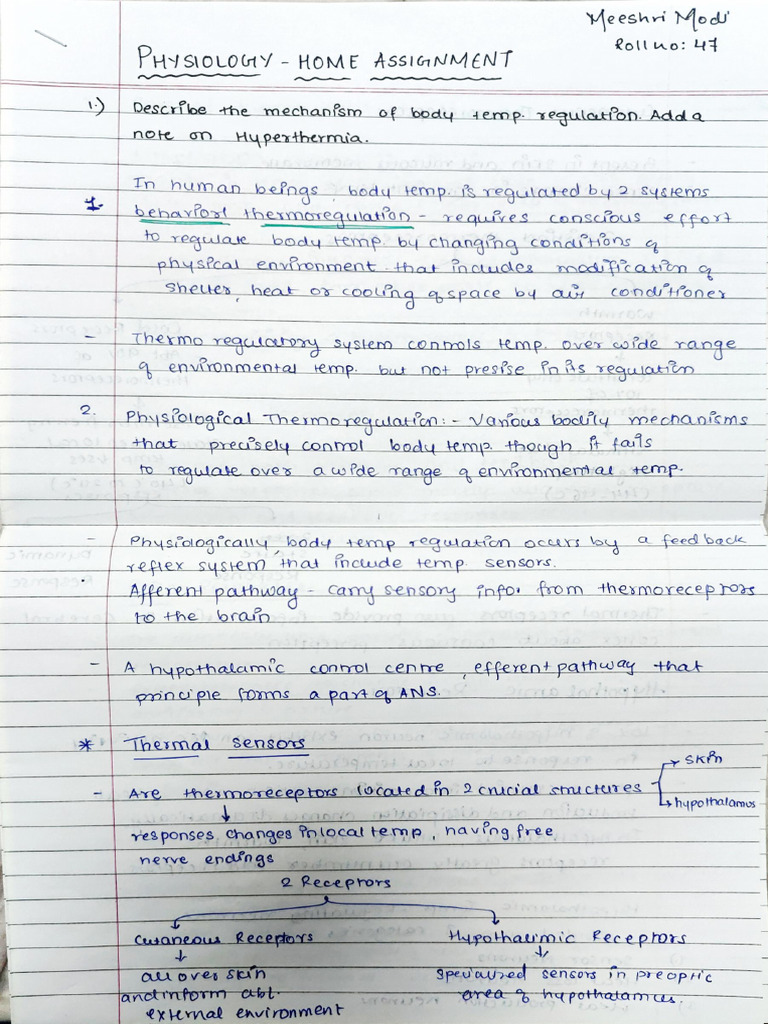 Meeshri Modi
Roll no: 47
PHYSIOLOGY - HOME ASSIGNMENT
1.) Describe the mechanism of body temp. regulation. Add a
note on Hyperthermia.
In human beings, body temp. is regulated by 2 systems
1. behaviorl thermoregulation - requires conscious effort
to regulate body temp. by changing conditions of
physical environment that includes modification of
shelter, heat or cooling of space by air conditioner
- Thermo regulatory system controls temp. over wide range
of environmental temp. but not presise in its regulation
2. Physiological Thermoregulation:- Various bodily mechanisms
that precisely control body temp. though it fails
to regulate over a wide range of environmental temp.
- Physiologically, body temp regulation occurs by a feedback
reflex system that include temp. sensors.
Afferent pathway - carry sensory info. from thermoreceptors
to the brain
- A hypothalamic control centre, efferent pathway that
principle forms a part of ANS.
* Thermal sensors
- Are thermoreceptors located in 2 crucial structures → skin
→ hypothalamus
↓
responses changes in local temp, having free
nerve endings
2 Receptors
Cutaneous Receptors Hypothalimic Receptors
↓ ↓
all over skin specialized sensors in preoptic
and inform abt. area of hypothalamus.
external environment